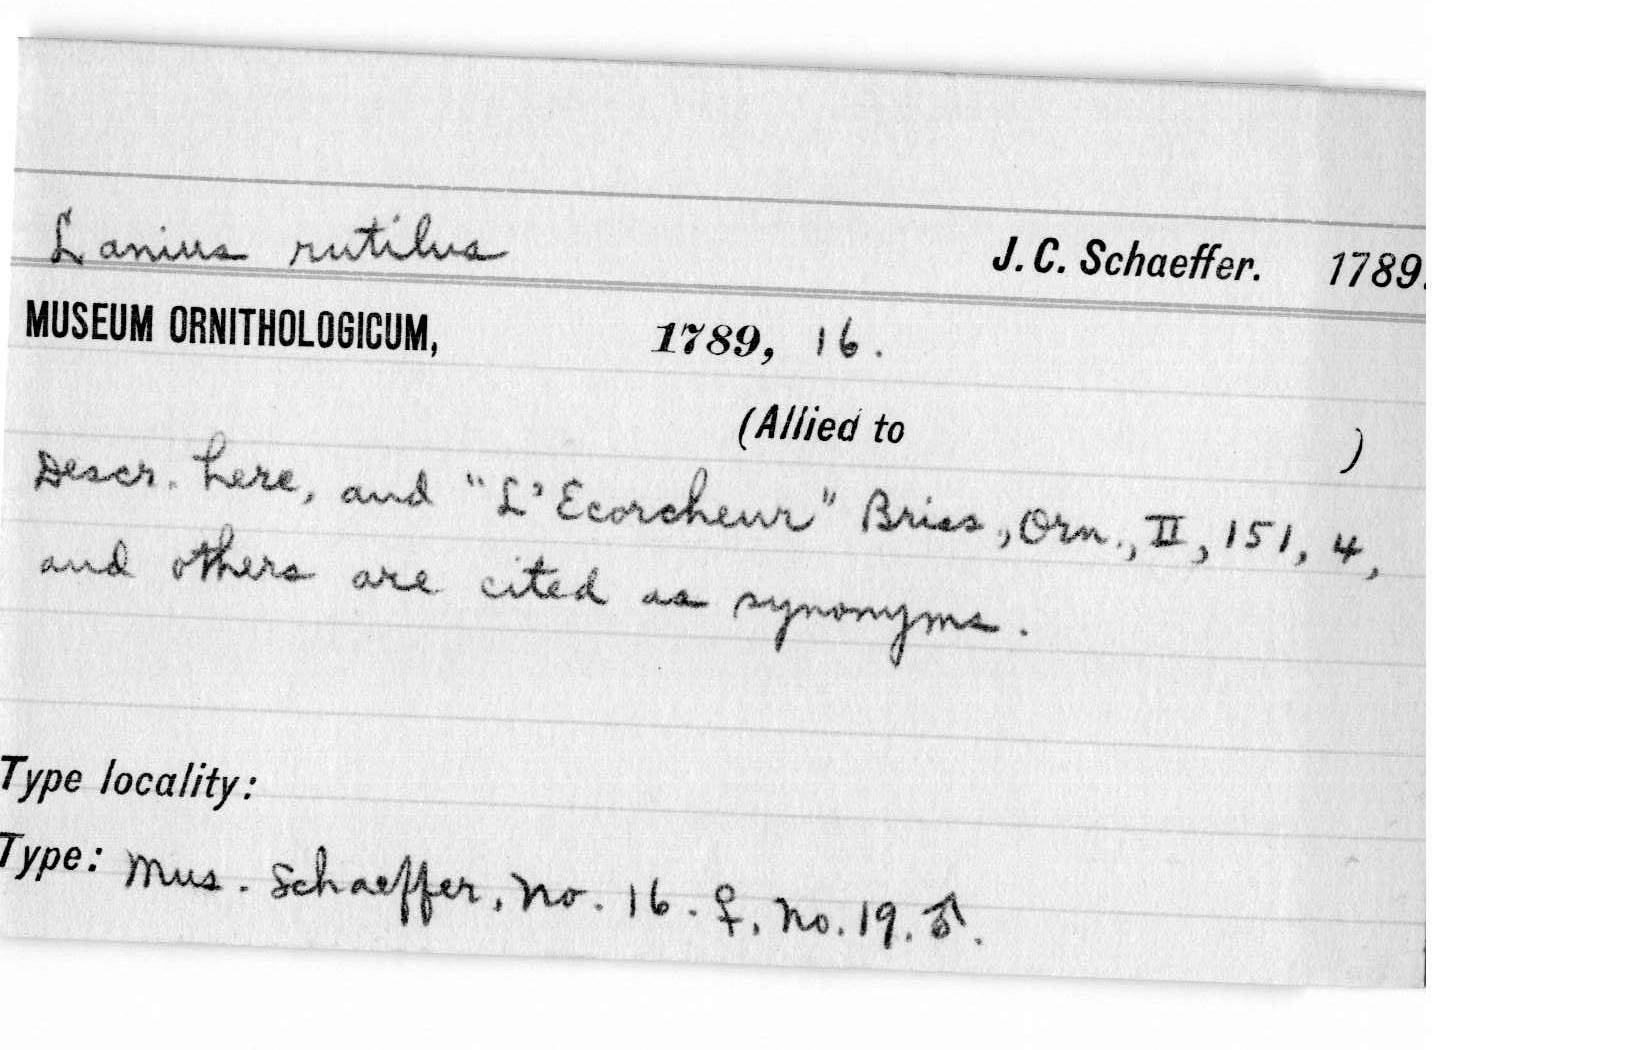 Lanius rutilus J. C. Schaeffer. 1789.
MUSEUM ORNITHOLOGICUM, 1789, 16.
(Allied to )
Descr. here, and "L'Ecorcheur" Briss., Orn., II, 151, 4,
and others are cited as synonyms.
Type locality:
Type: Mus. Schaeffer, No. 16. ♀, No. 19. ♂.